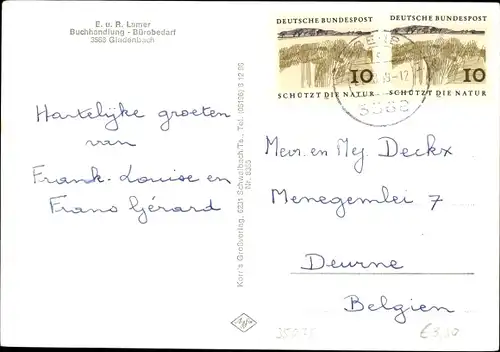 E. u. R. Lamer
Buchhandlung - Bürobedarf
3568 Gladenbach
Hartelijke groeten
van
Frank. Louise en
Frans Gérard
Korr's Großverlag, 6231 Schwalbach/Ts., Tel. (06196) 8 12 80
DEUTSCHE BUNDESPOST
10
SCHÜTZT DIE NATUR
DEUTSCHE BUNDESPOST
10
SCHÜTZT DIE NATUR
Mevr. en Mej. Deckx
Menegemlei 7
Deurne
Belgien
Agfa